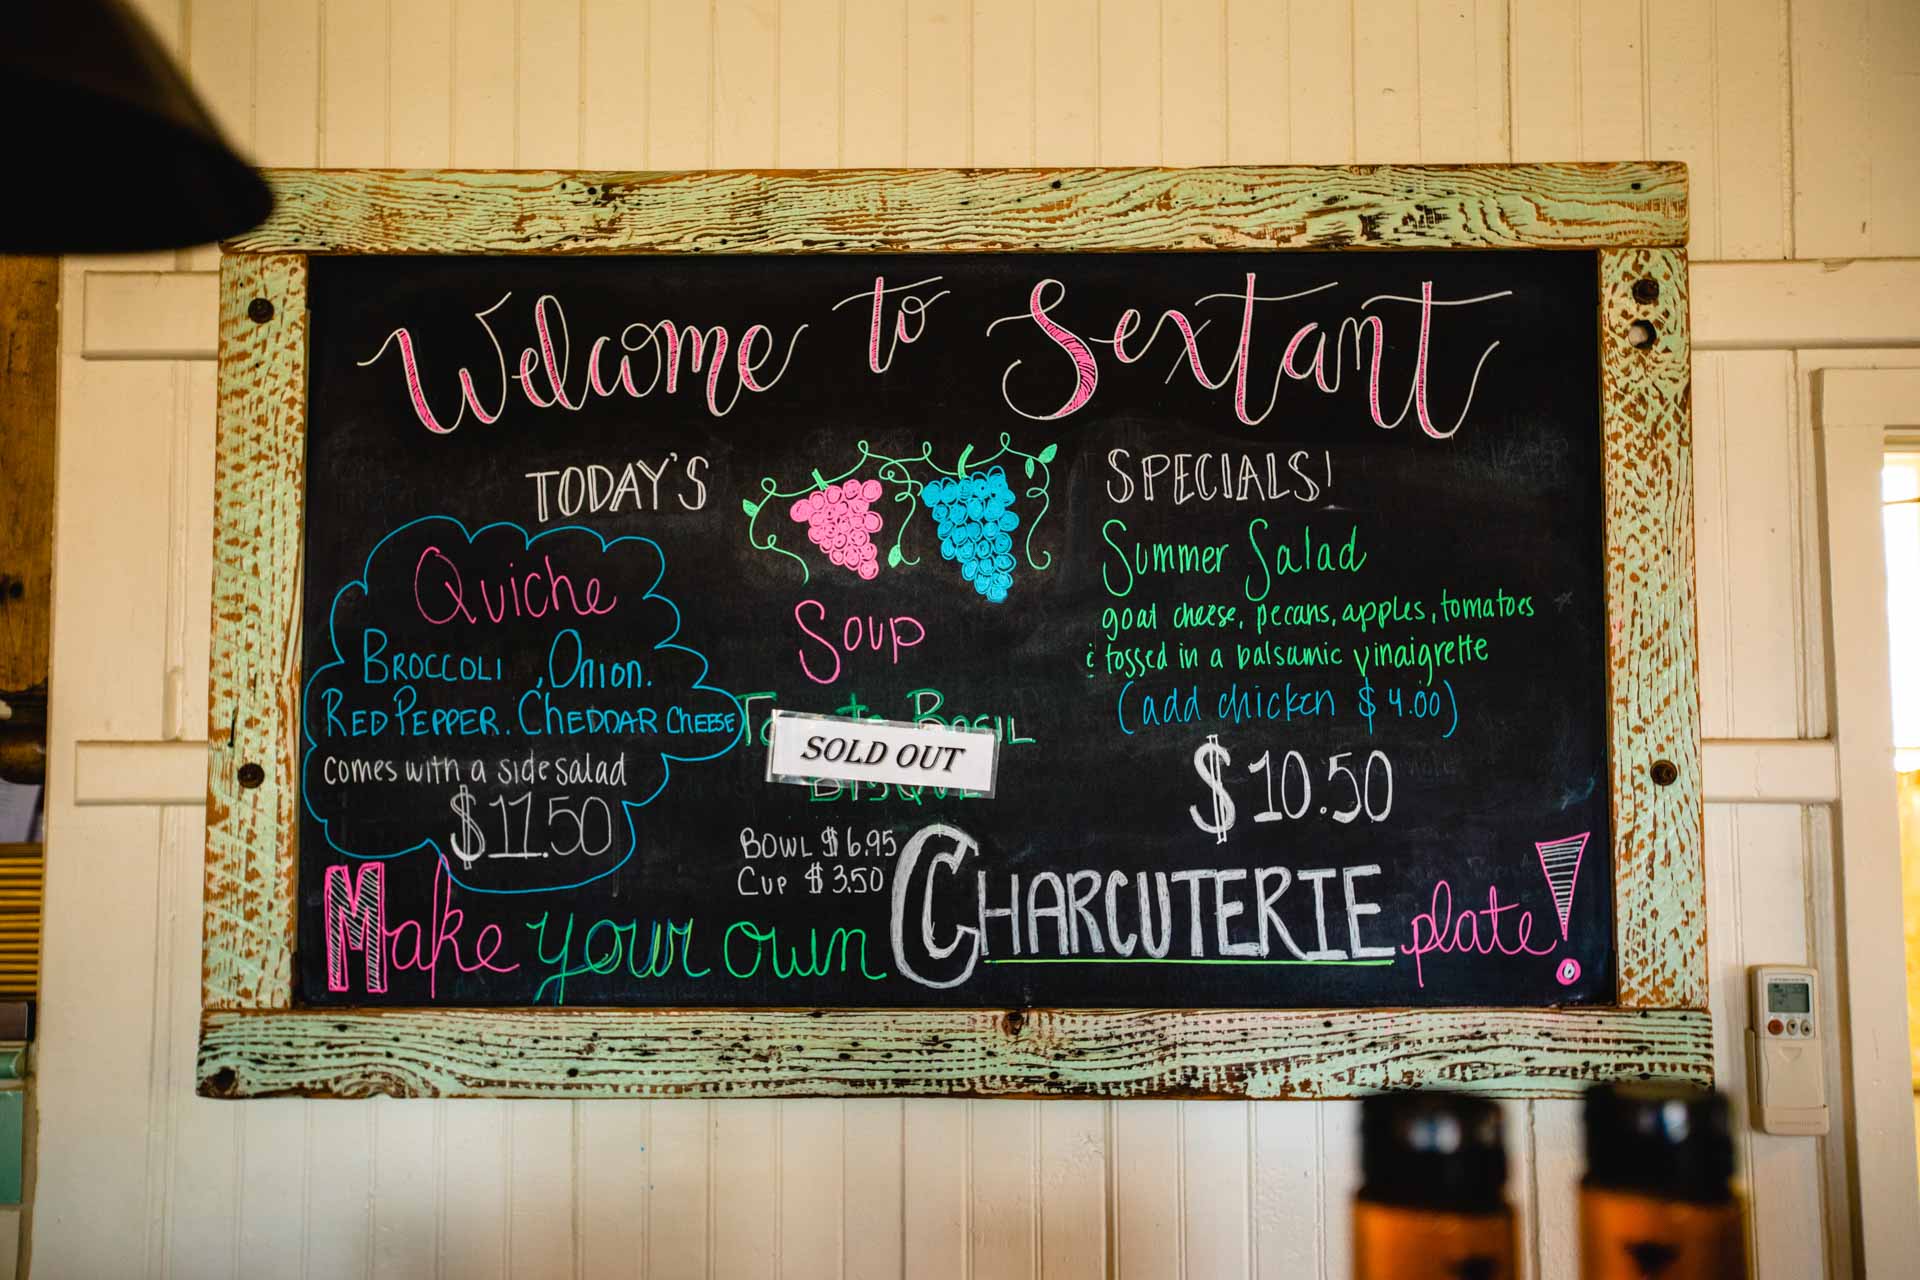 Welcome to Sextant
TODAY'S SPECIALS!
Quiche
BROCCOLI, ONION.
RED PEPPER. CHEDDAR CHEESE
comes with a side salad
$11.50
Soup
Tomato BASIL
SOLD OUT
BISQUE
BOWL $6.95
CUP $3.50
Summer Salad
goat cheese, pecans, apples, tomatoes
& tossed in a balsamic vinaigrette
(add chicken $4.00)
$10.50
Make your own CHARCUTERIE plate!